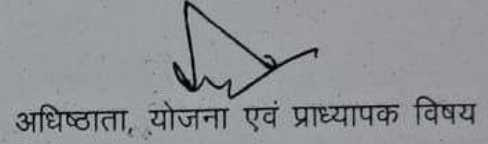 अधिष्ठाता, योजना एवं प्राध्यापक विषय